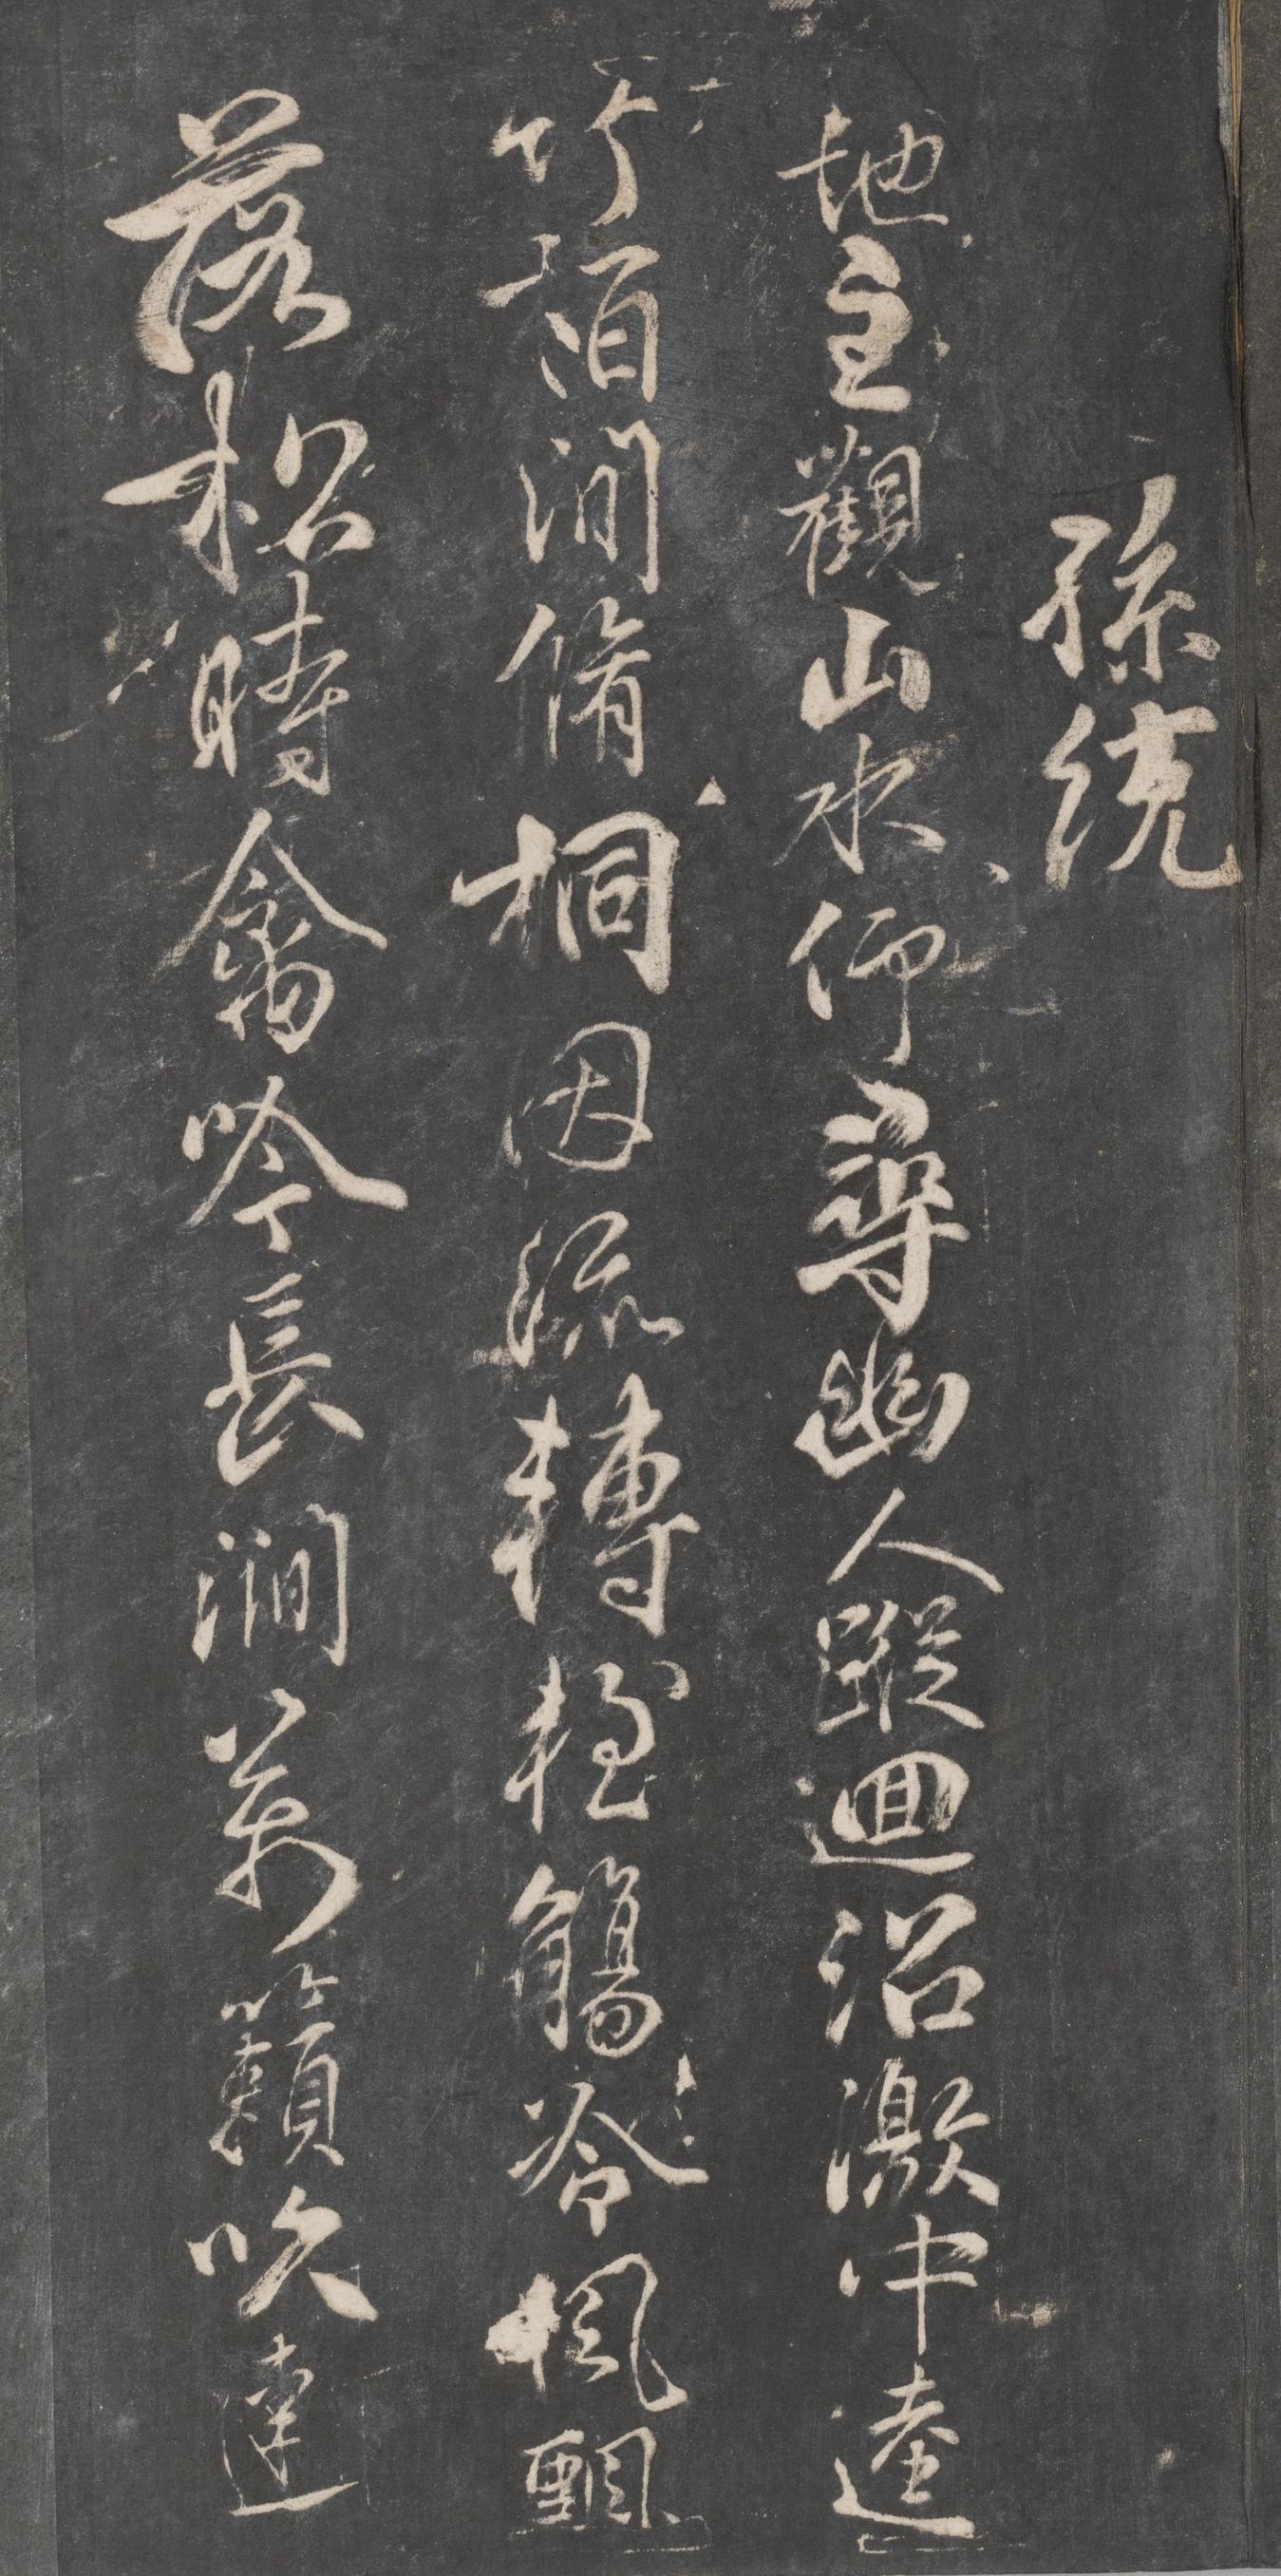 孫統
地主觀山水仰尋幽人蹤迴沼激中逵
竹栢間脩桐因流轉輕觴冷楓飄
落松時禽吟長澗萬籟吹連